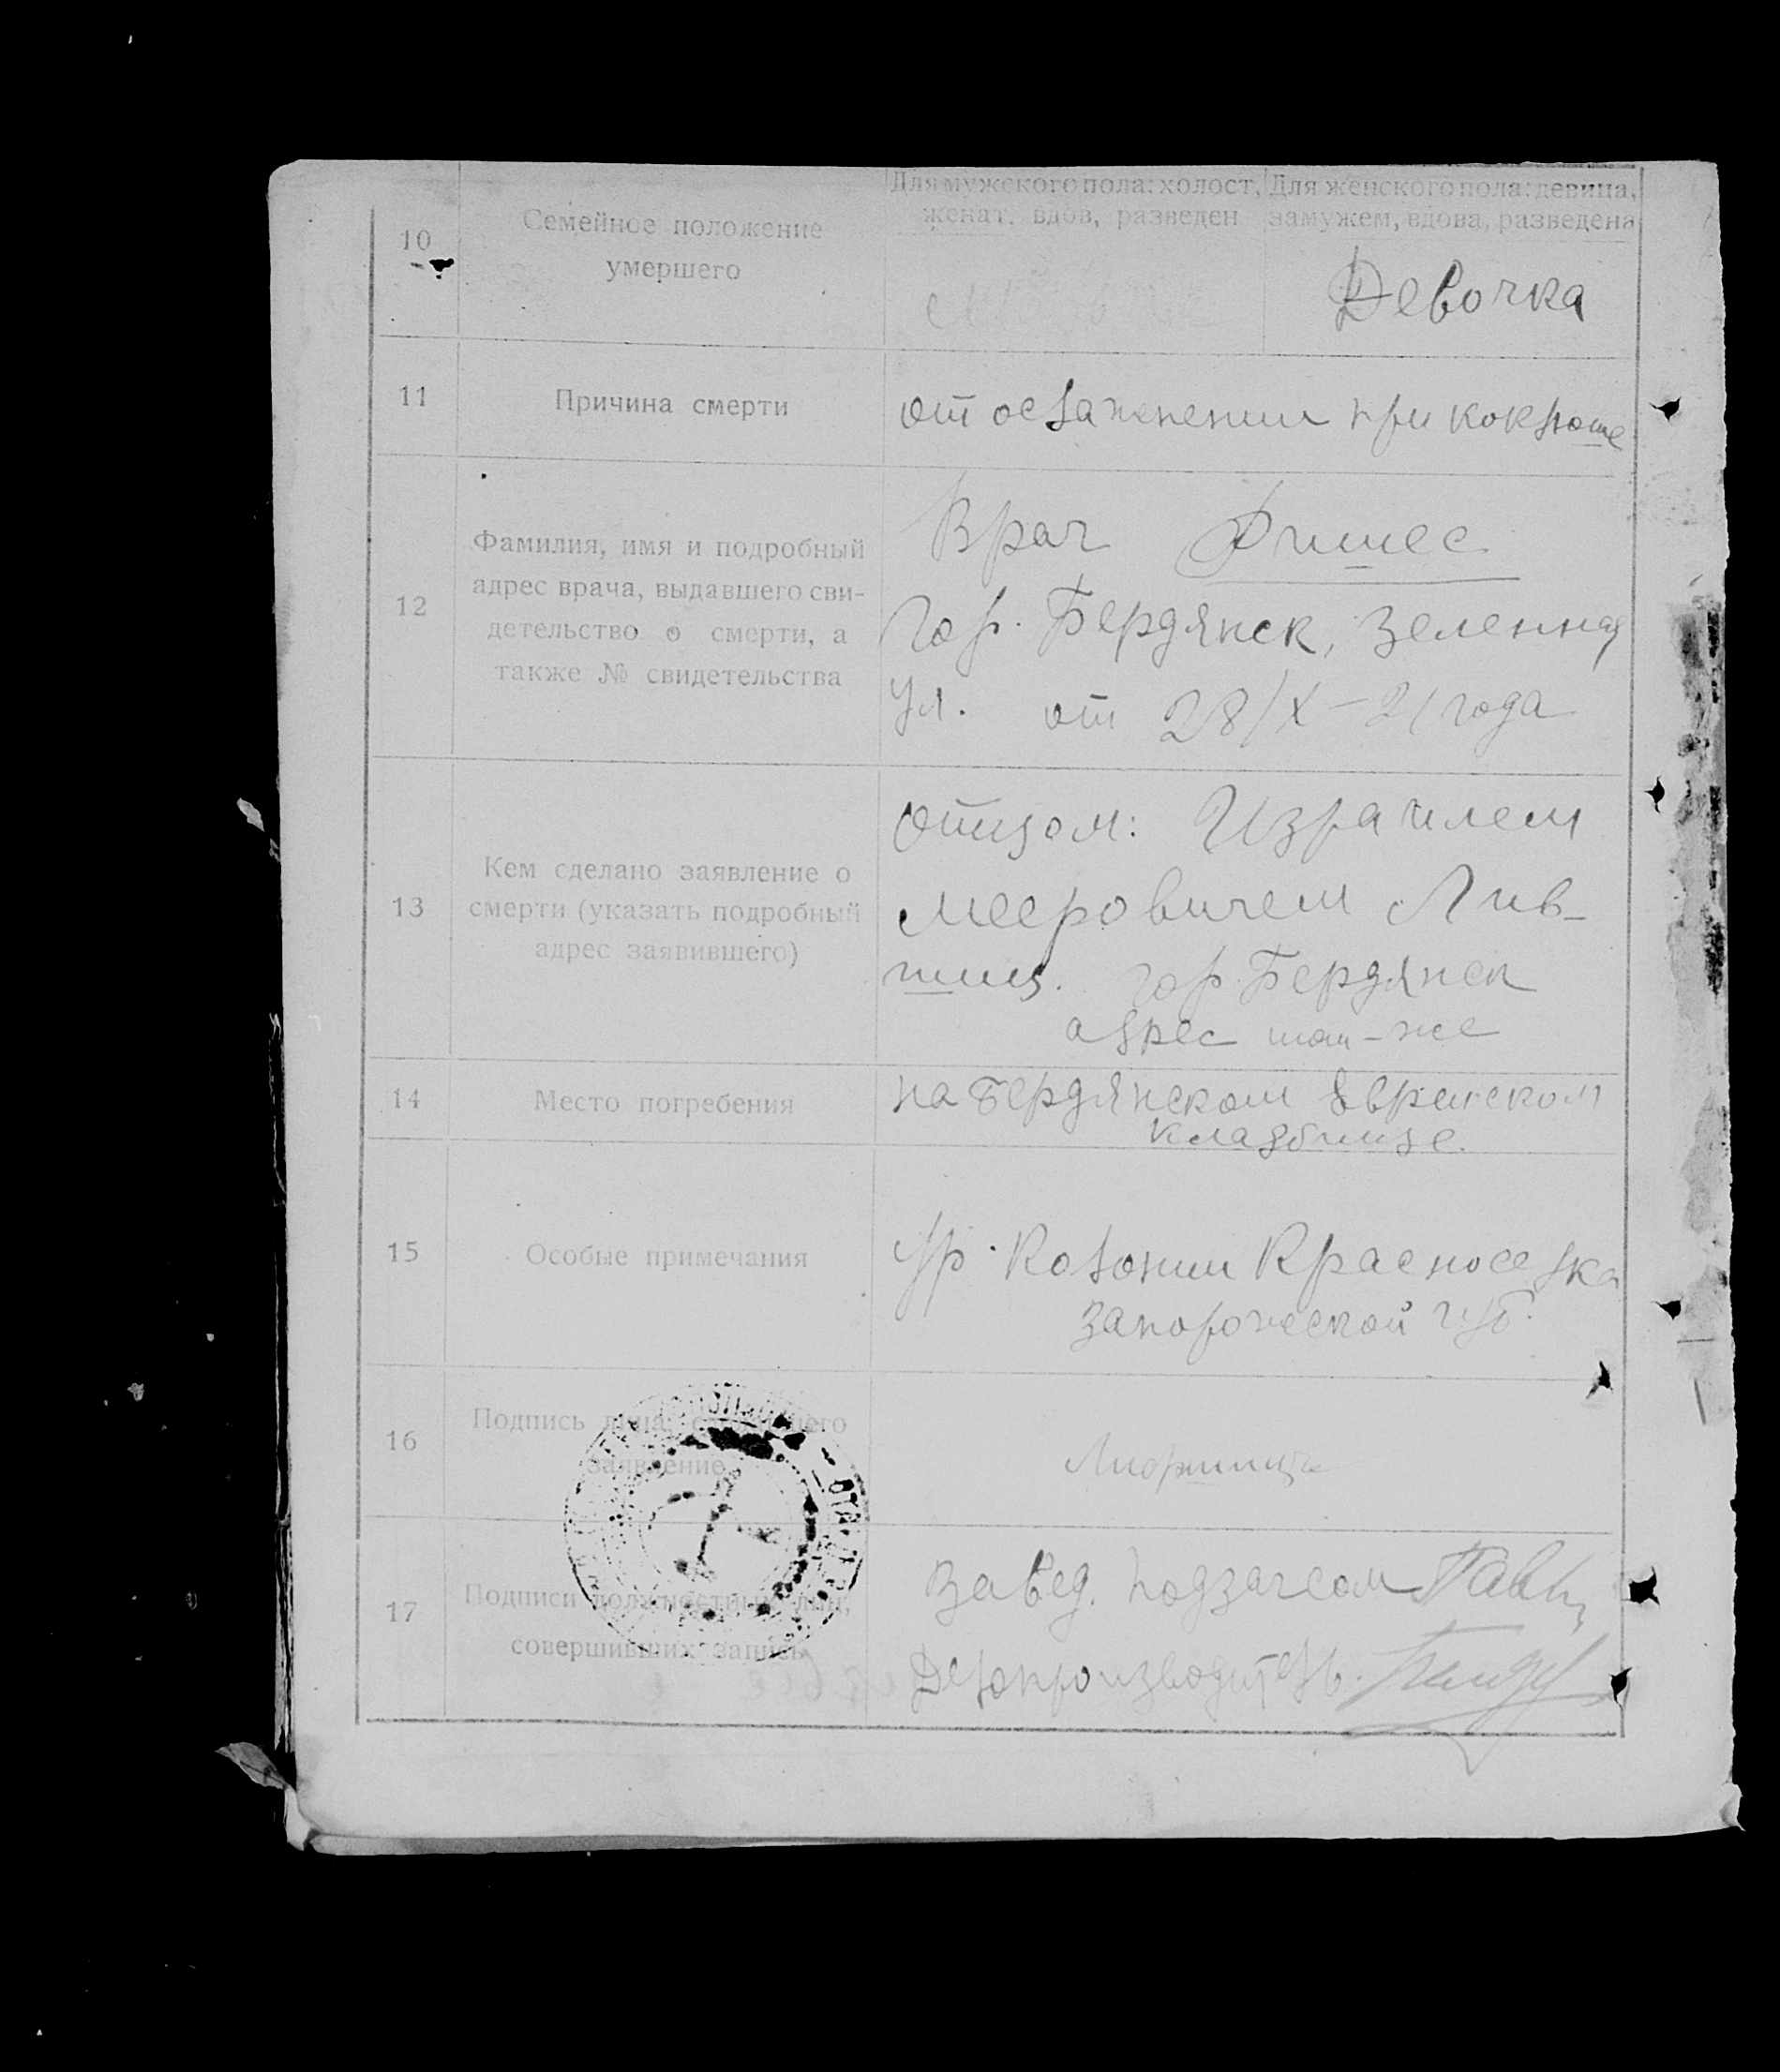 10
Семейное положение
умершего
Для мужского пола: холост,
женат, вдов, разведен
Для женского пола: девица,
замужем, вдова, разведена
Девочка
11
Причина смерти
от осложнении при коклюше
12
Фамилия, имя и подробный
адрес врача, выдавшего сви-
детельство о смерти, а
также № свидетельства
Врач
гор. Бердянск, Зеленная
ул. от 28/X–21 года
13
Кем сделано заявление о
смерти (указать подробный
адрес заявившего)
отцом: Израилем
Мееровичем Лив-
шиц. гор. Бердянск
адрес там-же
14
Место погребения
на Бердянском Еврейском
кладбище.
15
Особые примечания
Ур. Колонии Красноселка
Запорожской губ.
16
Подпись лица, сделавшего
заявление
17
Подписи должностных лиц,
совершивших запись
Завед. подзагсом
Делопроизводитель.